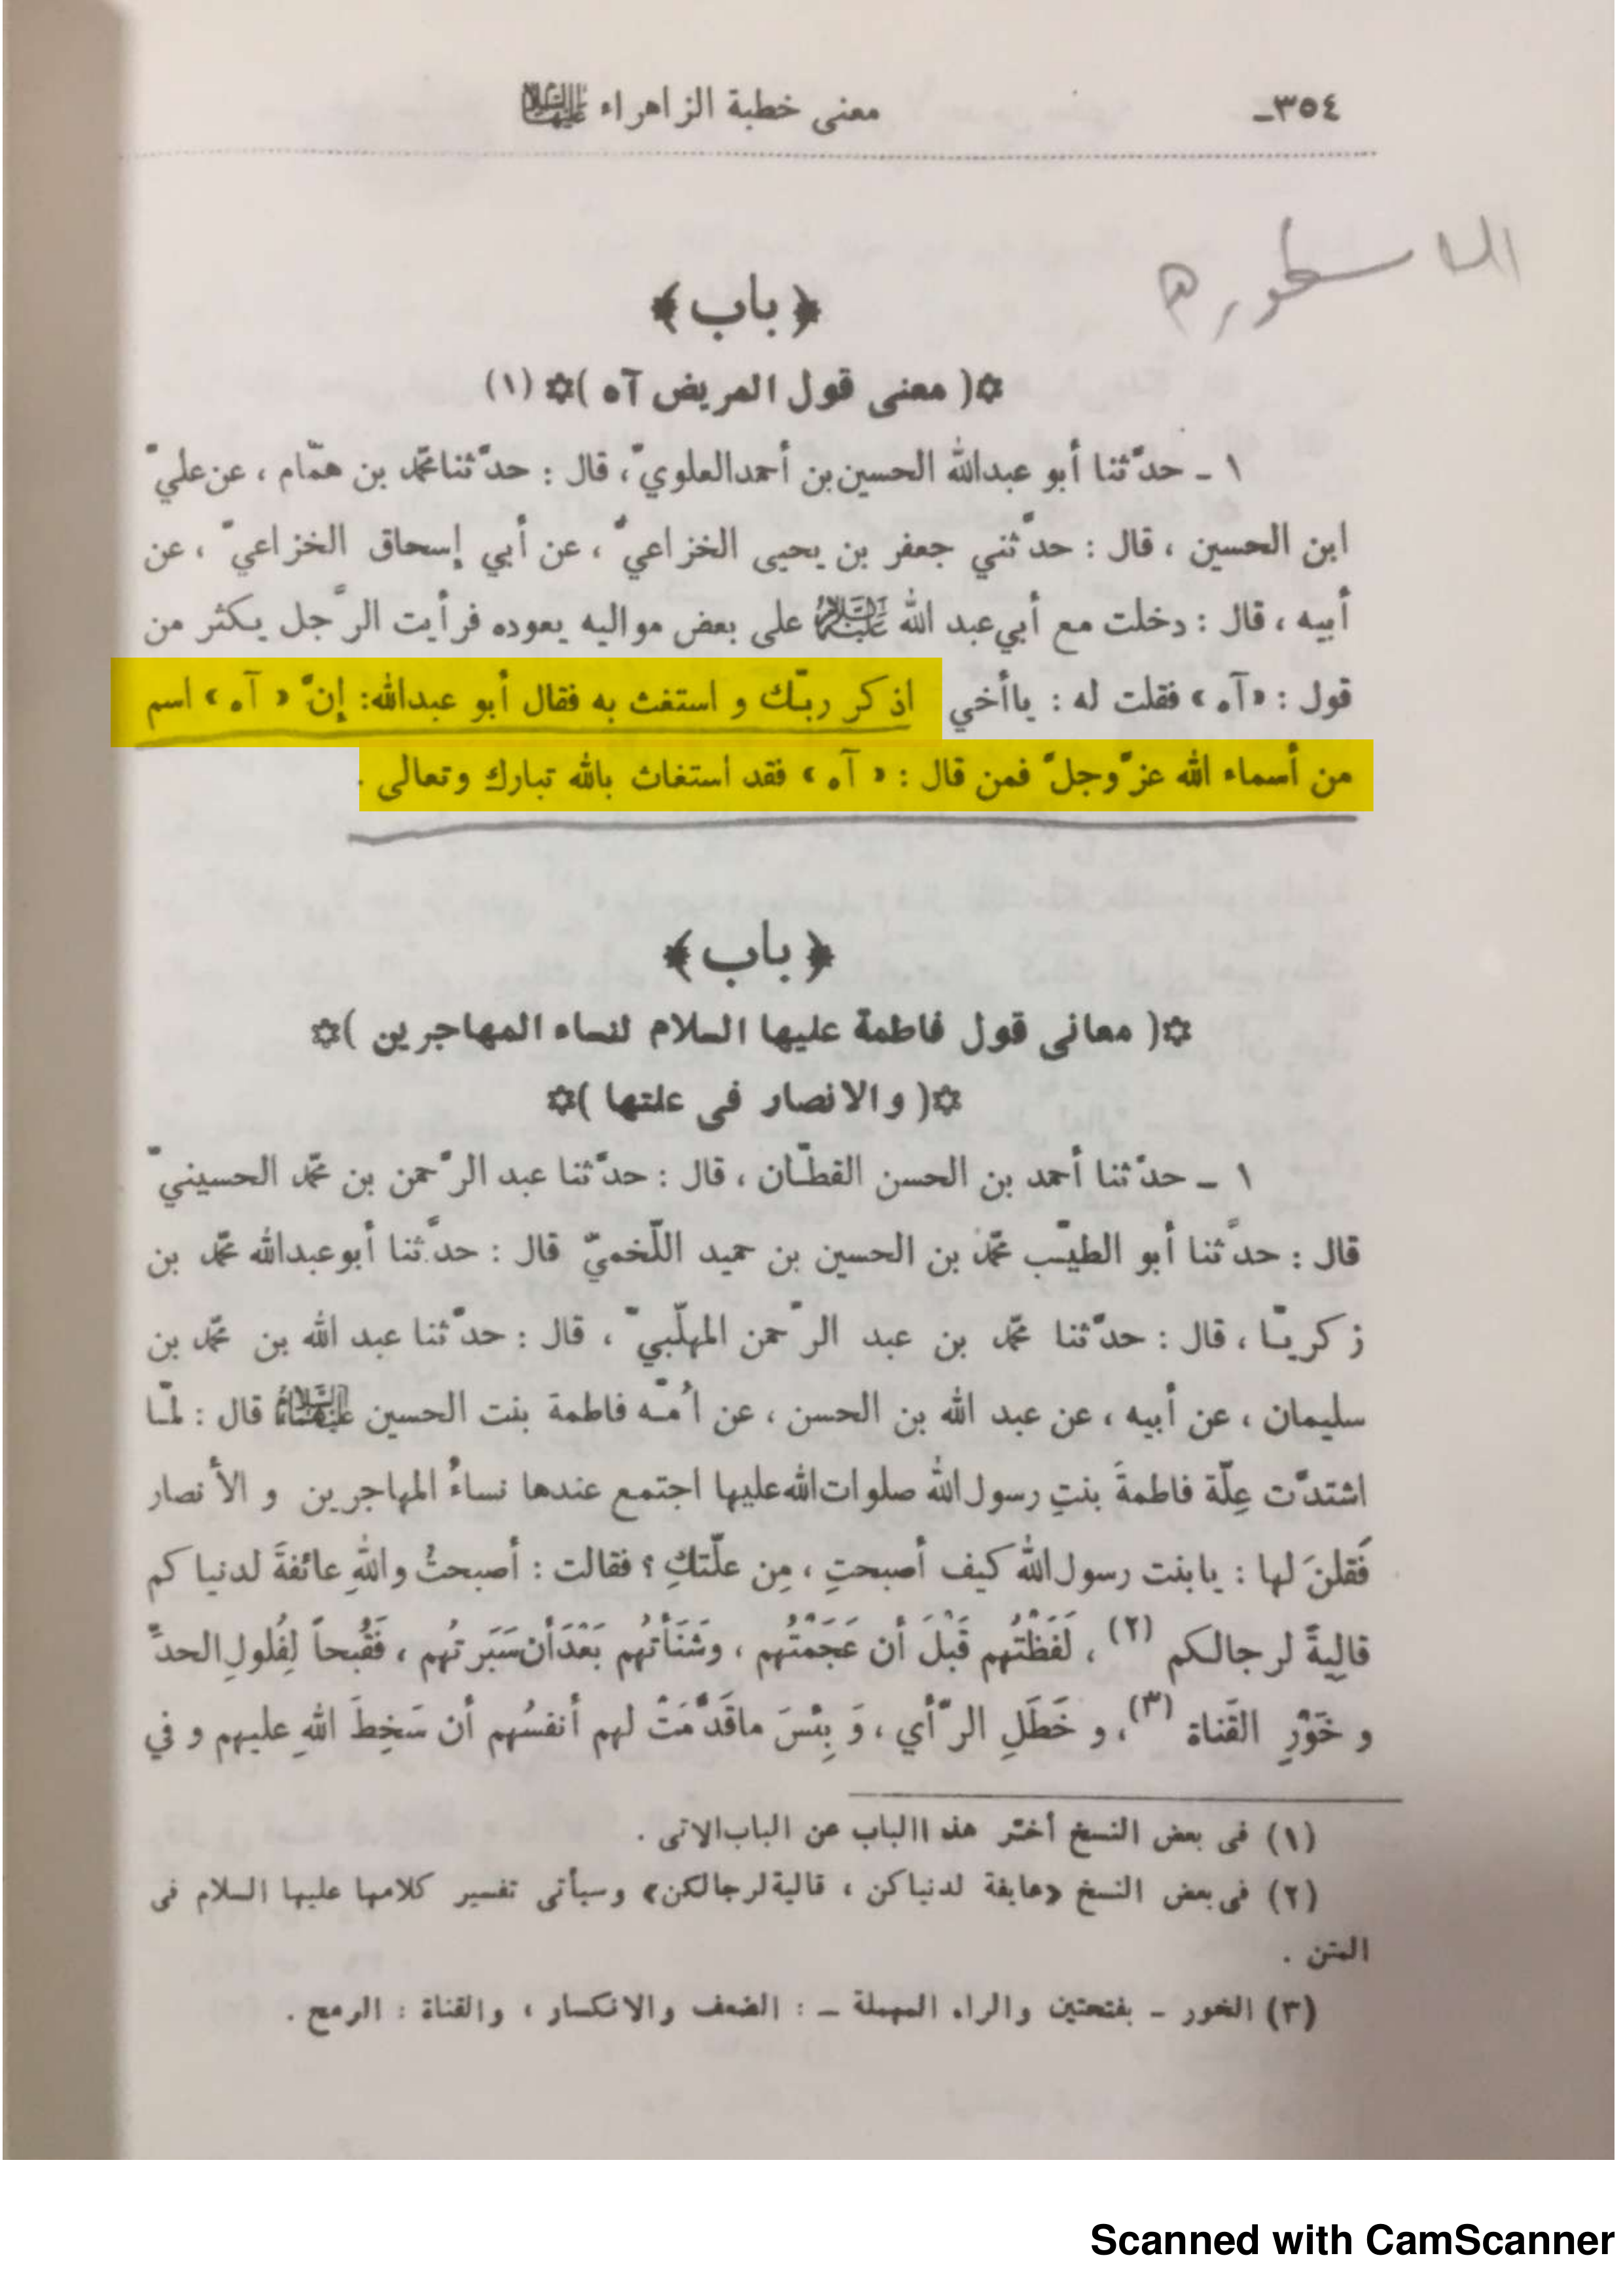 ٣٥٤ـ معنى خطبة الزاهراء عليها السلام
الاسطوره
﴿ باب ﴾
✡( معنى قول المريض آه )✡ (١)
١ ـ حدّثنا أبو عبدالله الحسين بن أحمد العلويّ، قال : حدّثنا محمّد بن همّام ، عن عليّ
ابن الحسين ، قال : حدّثني جعفر بن يحيى الخزاعيّ ، عن أبي إسحاق الخزاعيّ ، عن
أبيه ، قال : دخلت مع أبي عبد الله عليه السلام على بعض مواليه يعوده فرأيت الرّجل يكثر من
قول : «آه» فقلت له : يا أخي اذكر ربّك و استغث به فقال أبو عبدالله: إنّ «آه» اسم
من أسماء الله عزّوجلّ فمن قال : «آه» فقد استغاث بالله تبارك وتعالى .
﴿ باب ﴾
✡( معانى قول فاطمة عليها السلام لنساء المهاجرين )✡
✡( والانصار فى علتها )✡
١ ـ حدّثنا أحمد بن الحسن القطّان ، قال : حدّثنا عبد الرّحمن بن محمّد الحسينيّ
قال : حدّثنا أبو الطيّب محمّد بن الحسين بن حميد اللّخميّ قال : حدّثنا أبوعبدالله محمّد بن
زكريّا ، قال : حدّثنا محمّد بن عبد الرّحمن المهلّبيّ ، قال : حدّثنا عبد الله بن محمّد بن
سليمان ، عن أبيه ، عن عبد الله بن الحسن ، عن اُمّه فاطمة بنت الحسين عليهما السلام قال : لمّا
اشتدّت عِلّة فاطمةَ بنتِ رسول الله صلوات الله عليها اجتمع عندها نساءُ المهاجرين و الأنصار
فَقلنَ لها : يا بنت رسول الله كيف أصبحتِ ، مِن علّتكِ ؟ فقالت : أصبحتُ واللهِ عائفةً لدنياكم
قالِيةً لرجالكم (٢) ، لَفَظْتُهم قَبْلَ أن عَجَمْتُهم ، وشَنَأْتُهم بَعْدَ أن سَبَرتُهم ، فَقُبحاً لِفُلولِ الحدِّ
و خَوْرِ القَناة (٣)، و خَطَلِ الرّأي ، وَ بِئْسَ ما قَدَّمَتْ لهم أنفسُهم أن سَخِطَ اللهِ عليهم و في
(١) فى بعض النسخ أخّر هذه االباب عن الباب الاتى .
(٢) فى بعض النسخ «عايفة لدنياكن ، قالية لرجالكن» وسيأتى تفسير كلامها عليها السلام فى
المتن .
(٣) الخور ـ بفتحتين والراء المهملة ـ : الضعف والانكسار ، والقناة : الرمح .
Scanned with CamScanner